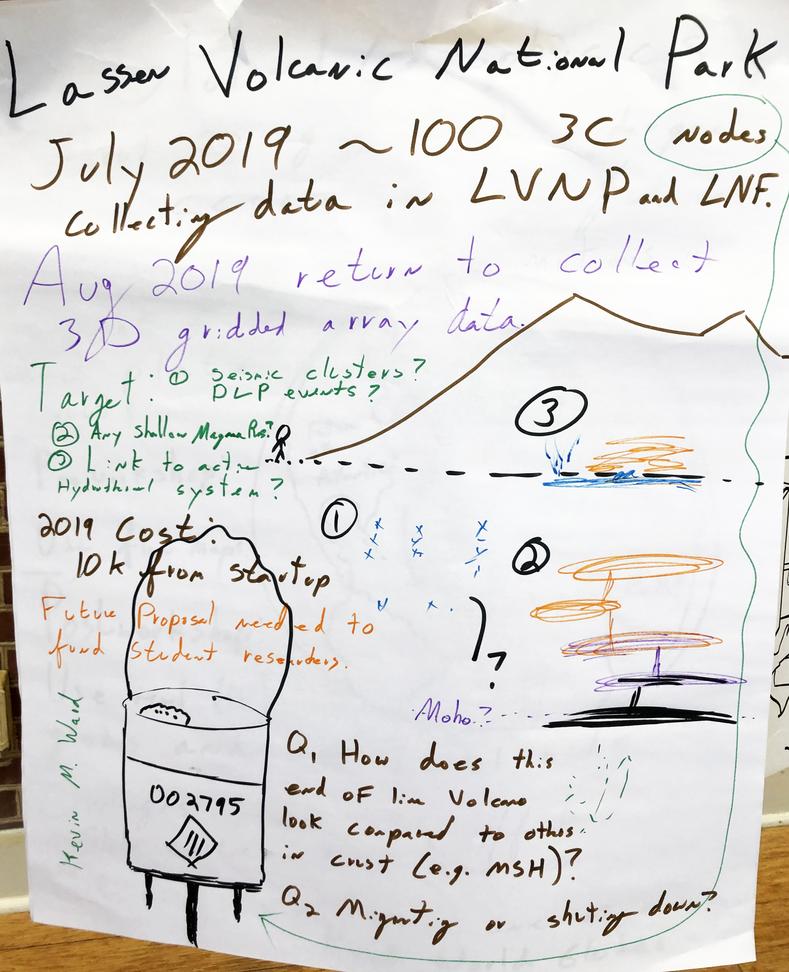 Lassen Volcanic National Park
July 2019 ~100 3C nodes
collecting data in LVNP and LNF.
Aug 2019 return to collect
3D gridded array data.
Target: ① Seismic clusters?
DLP events?
② Any Shallow Magma Res?
③ Link to active
Hydrothermal system?
③
2019 Cost:
10k from startup
①
②
Future Proposal needed to
fund student researchers.
?
Moho?
Kevin M. Ward
002795
Q1 How does this
end of line Volcano
look compared to others
in crust (e.g. MSH)?
Q2 Migrating or shuting down?